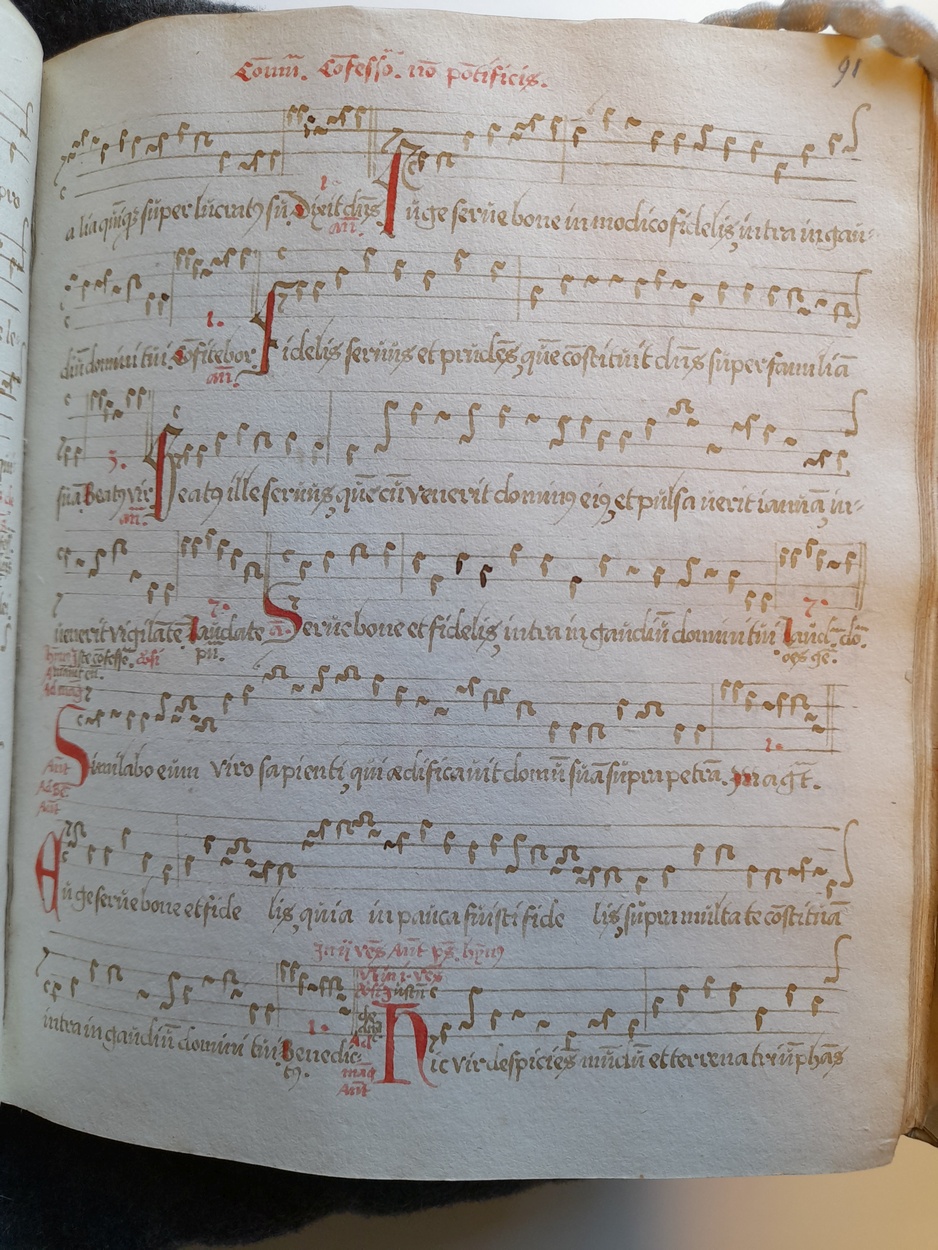 Com̄u. Cōfesso. nō pōtificis.
91
alia quīqꝫ super lucratꝰ sū. Dixit dn̄s. Euge serue bone in modico fidelis, intra in gau-
1. an̄.
diū domini tui. Cōfitebor. Fidelis seruus et prudēs, quē cōstituit dn̄s super familiā
1. an̄.
suā. Beatꝰ vir. Beatꝰ ille seruus, quē cū venerit dominꝰ eiꝰ, et pulsauerit ianuā, in-
3. an̄.
uenerit vigilātē. Laudate a. Serue bone et fidelis, intra in gaudiū domini tui. Laud. do.
7. pu. 7. oēs gē.
Ad mag
Similabo eum viro sapienti, qui ædificauit domū suā supra petrā. Magt̄.
1.
Ant
Euge serue bone et fidelis, quia in pauca fuisti fidelis, supra multa te cōstituā
In ij vēs Ant ps. hym̄
intra in gaudiū domini tui. Benedic-
1. tꝰ.
Ad mag Ant
Hic vir despiciēs mūdū et terrena triūphās